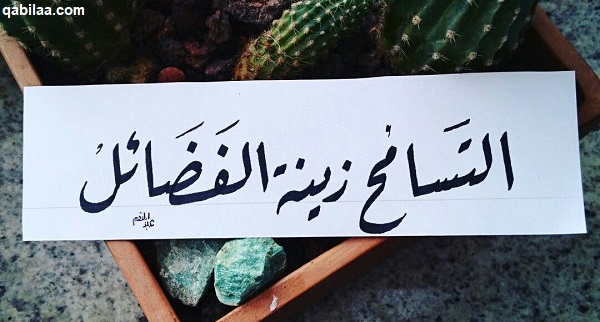 qabilaa.com
التَسامُح زينة الفَضَائلْ
عبدالمنعم